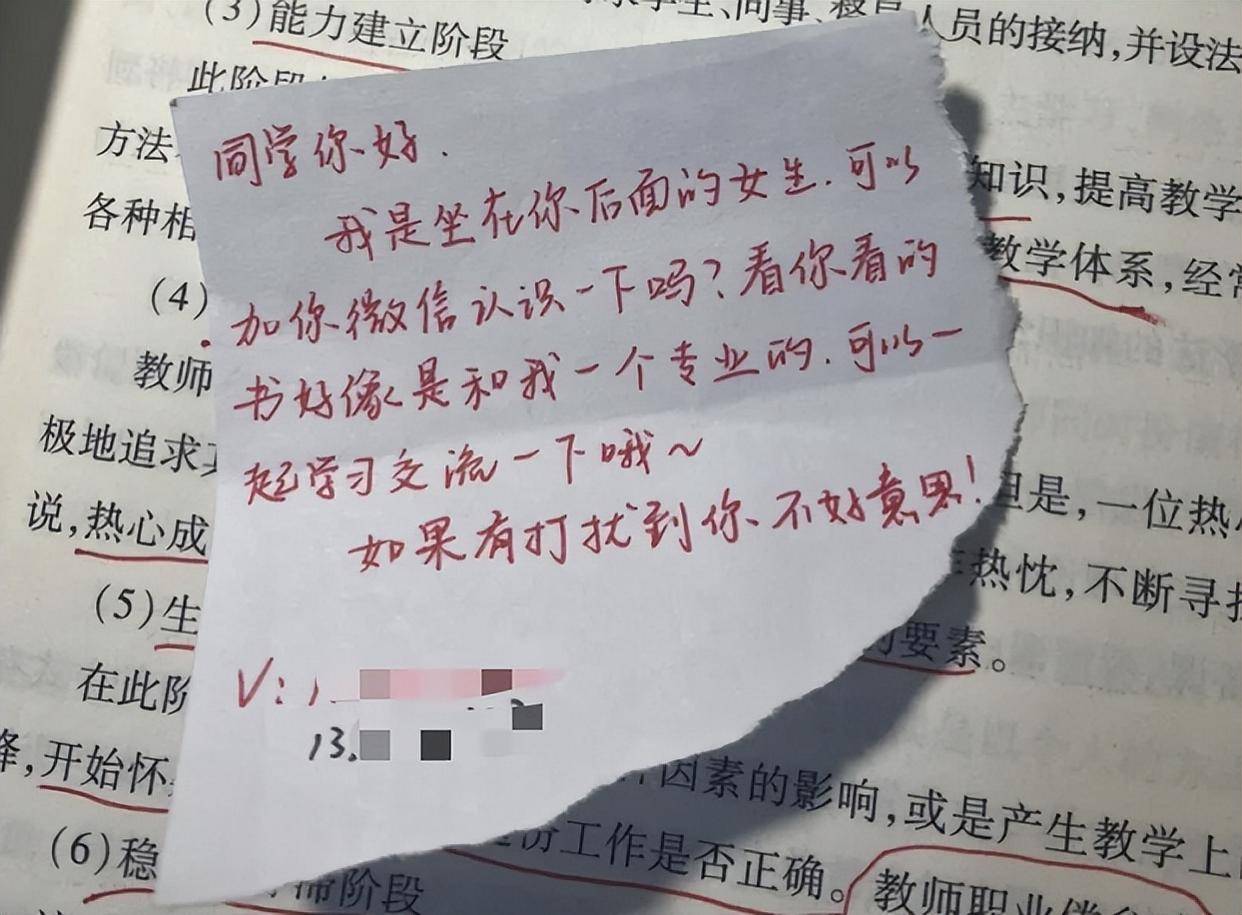 (3)能力建立阶段
人员的接纳,并设法
此阶段
方法
各种相
知识,提高教学
教学体系,经常
(4)
教师
极地追求
说,热心成
但是,一位热心
热忱,不断寻找
的要素。
(5)生
在此阶
开始怀
因素的影响,或是产生教学上
份工作是否正确。
(6)稳
滞阶段
教师职业
同学你好.
我是坐在你后面的女生.可以
加你微信认识一下吗?看你看的
书好像是和我一个专业的.可以一
起学习交流一下哦~
如果有打扰到你、不好意思!
V:1
13.